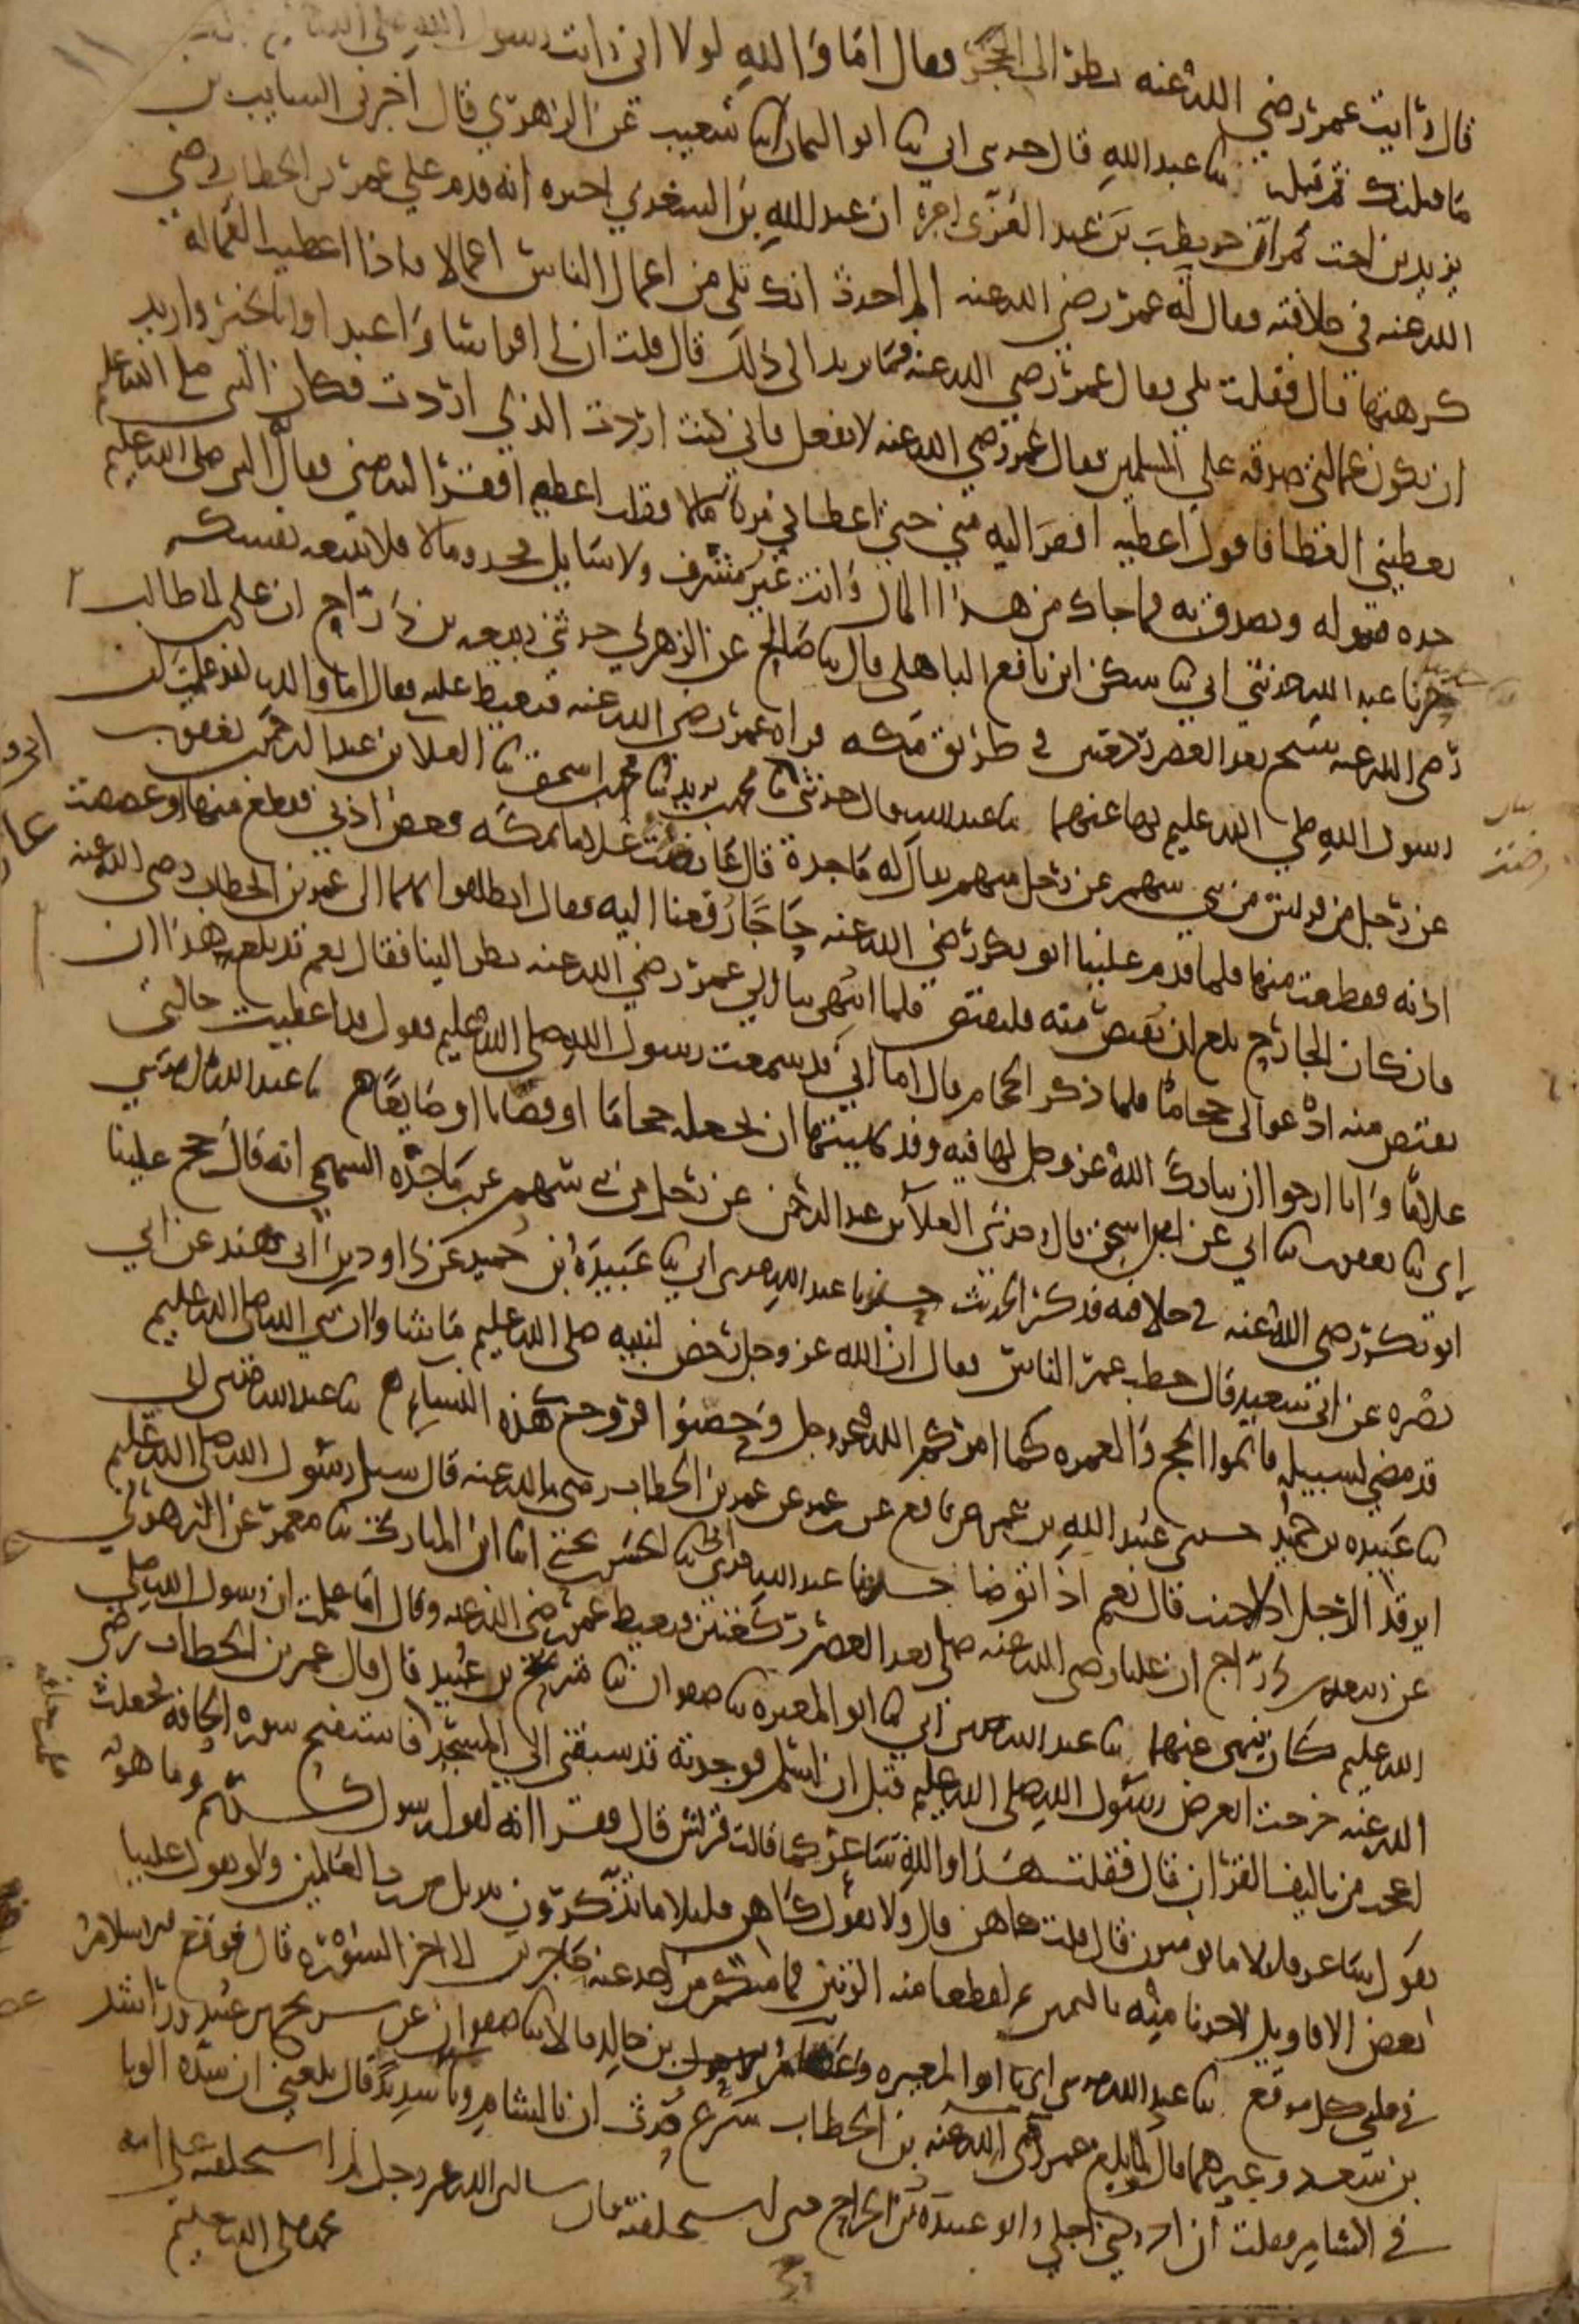 قال رايت عمر رضي الله عنه نظر الى الحجر فقال اما والله لولا اني رايت رسول الله صلى الله عليه
ما قبلتك ثم قبله ثنا عبد الله قال حدثني ابي ثنا ابو اليمان انبا شعيب عن الزهري قال اخبرني السايب بن
يزيد بن اخت نمر ان حويطب بن عبد العزى اخبره ان عبد الله بن السعدي اخبره انه قدم على عمر بن الخطاب رضي
الله عنه في خلافته فقال له عمر رضي الله عنه الم احدث انك تلي من اعمال الناس اعمالا فاذا اعطيت العمالة
كرهتها قال فقلت بلى فقال عمر رضي الله عنه فما تريد الى ذلك قال قلت ان لي افراسا واعبدا وانا بخير واريد
ان تكون عمالتي صدقه على المسلمين فقال عمر رضي الله عنه لا تفعل فاني كنت اردت الذي اردت فكان النبي صلى الله عليه
يعطيني العطا فاقول اعطيه افقر اليه مني حتى اعطاني مرة مالا فقلت اعطه افقر اليه مني فقال له النبي صلى الله عليه
خذه فتموله وتصدق به فما جاك من هذا المال وانت غير مشرف ولا سايل فخذه ومالا فلا تتبعه نفسك
اخبرنا عبد الله حدثني ابي ثنا سكن ابن نافع الباهلي قال ثنا صالح عن الزهري حدثني ربيعه بن دراج ان علي بن ابي طالب
رضي الله عنه سبح بعد العصر ركعتين في طريق مكه فراه عمر رضي الله عنه فتغيظ عليه فقال اما والله لقد علمت ان
رسول الله صلى الله عليه نهى عنهما ثنا عبد الله قال حدثني ابي ثنا محمد بن يزيد ثنا محمد بن اسحق ثنا العلا بن عبد الرحمن بن يعقوب
عن رجل من قريش من بني سهم عن رجل منهم يقال له ماجدة قال عارمت غلاما بمكه فعض اذني فقطع منها او عضضت
اذنه فقطعت منها فلما قدم علينا ابو بكر رضي الله عنه حاجا رفعنا اليه فقال انطلقوا بهما الى عمر بن الخطاب رضي الله عنه
فان كان الجارح بلغ ان يقتص منه فليقتص قلما انتهي بنا الى عمر رضي الله عنه نظر الينا فقال نعم قد بلغ هذا ان
يقتص منه ادعوا لي حجاما فلما ذكر الحجام قال اما اني قد سمعت رسول الله صلى الله عليه يقول قد اعطيت خالتي
غلاما وانا ارجوا ان يبارك الله عز وجل لها فيه وقد نهيتها ان تجعله حجاما او قصابا او صايغا ثنا عبد الله حدثني
ابي ثنا يعقوب ثنا ابي عن ابن اسحق قال وحدثني العلا بن عبد الرحمن عن رجل من بني سهم عن ابن ماجده السهمي انه قال حج علينا
ابو بكر رضي الله عنه في خلافته فذكر الحديث حدثنا عبد الله حدثني ابي ثنا عبيدة بن حميد عن داود بن ابي هند عن ابي
نضره عن ابي سعيد قال خطب عمر الناس فقال ان الله عز وجل رخص لنبيه صلى الله عليه ما شا وان نبي الله صلى الله عليه
قد مضى لسبيله فاتموا الحج والعمره كما امركم الله عز وجل وحصنوا فروج هذه النساء ثنا عبد الله حدثني ابي
ثنا عبيده بن حميد حدثني عبيد الله بن عمر عن نافع عن ابن عمر عن عمر بن الخطاب رضي الله عنه قال سيل رسول الله صلى الله عليه
ايرقد الرجل اذا اجنب قال نعم اذا توضا حدثنا عبد الله حدثني ابي ثنا الحسن بن يحيى انا ابن المبارك ثنا معمر عن الزهري
عن ربيعه بن دراج ان عليا رضي الله عنه صلى بعد العصر ركعتين فتغيظ عمر رضي الله عنه وقال اما علمت ان رسول الله صلى
الله عليه كان ينهى عنهما ثنا عبد الله حدثني ابي ثنا ابو المغيره ثنا صفوان ثنا شريح بن عبيد قال قال عمر بن الخطاب رضي
الله عنه خرجت اتعرض رسول الله صلى الله عليه قبل ان اسلم فوجدته قد سبقني الى المسجد فاستفتح سوره الحاقه فجعلت
اعجب من تاليف القران قال فقلت هذا والله شاعر كما قالت قريش قال فقرا انه لقول رسول كريم وما هو
بقول شاعر قليلا ما تومنون قال قلت كاهن قال ولا بقول كاهن قليلا ما تذكرون تنزيل من رب العالمين ولو تقول علينا
بعض الاقاويل لاخذنا منه باليمين ثم لقطعنا منه الوتين فما منكم من احد عنه حاجزين الى اخر السوره قال فوقع الاسلام
في قلبي كل موقع ثنا عبد الله حدثني ابي ثنا ابو المغيره وعصام بن خالد قالا ثنا صفوان عن شريح بن عبيد وراشد
بن سعد وغيرهما قال لما بلغ عمر رضي الله عنه بن الخطاب سرغ حدث ان بالشام وبا شديد قال بلغني ان شده الوبا
في الشام فقلت ان ادركني اجلي وابو عبيدة بن الجراح حي استخلفته فان سالني الله عز وجل لم استخلفته على امه
محمد صلى الله عليه